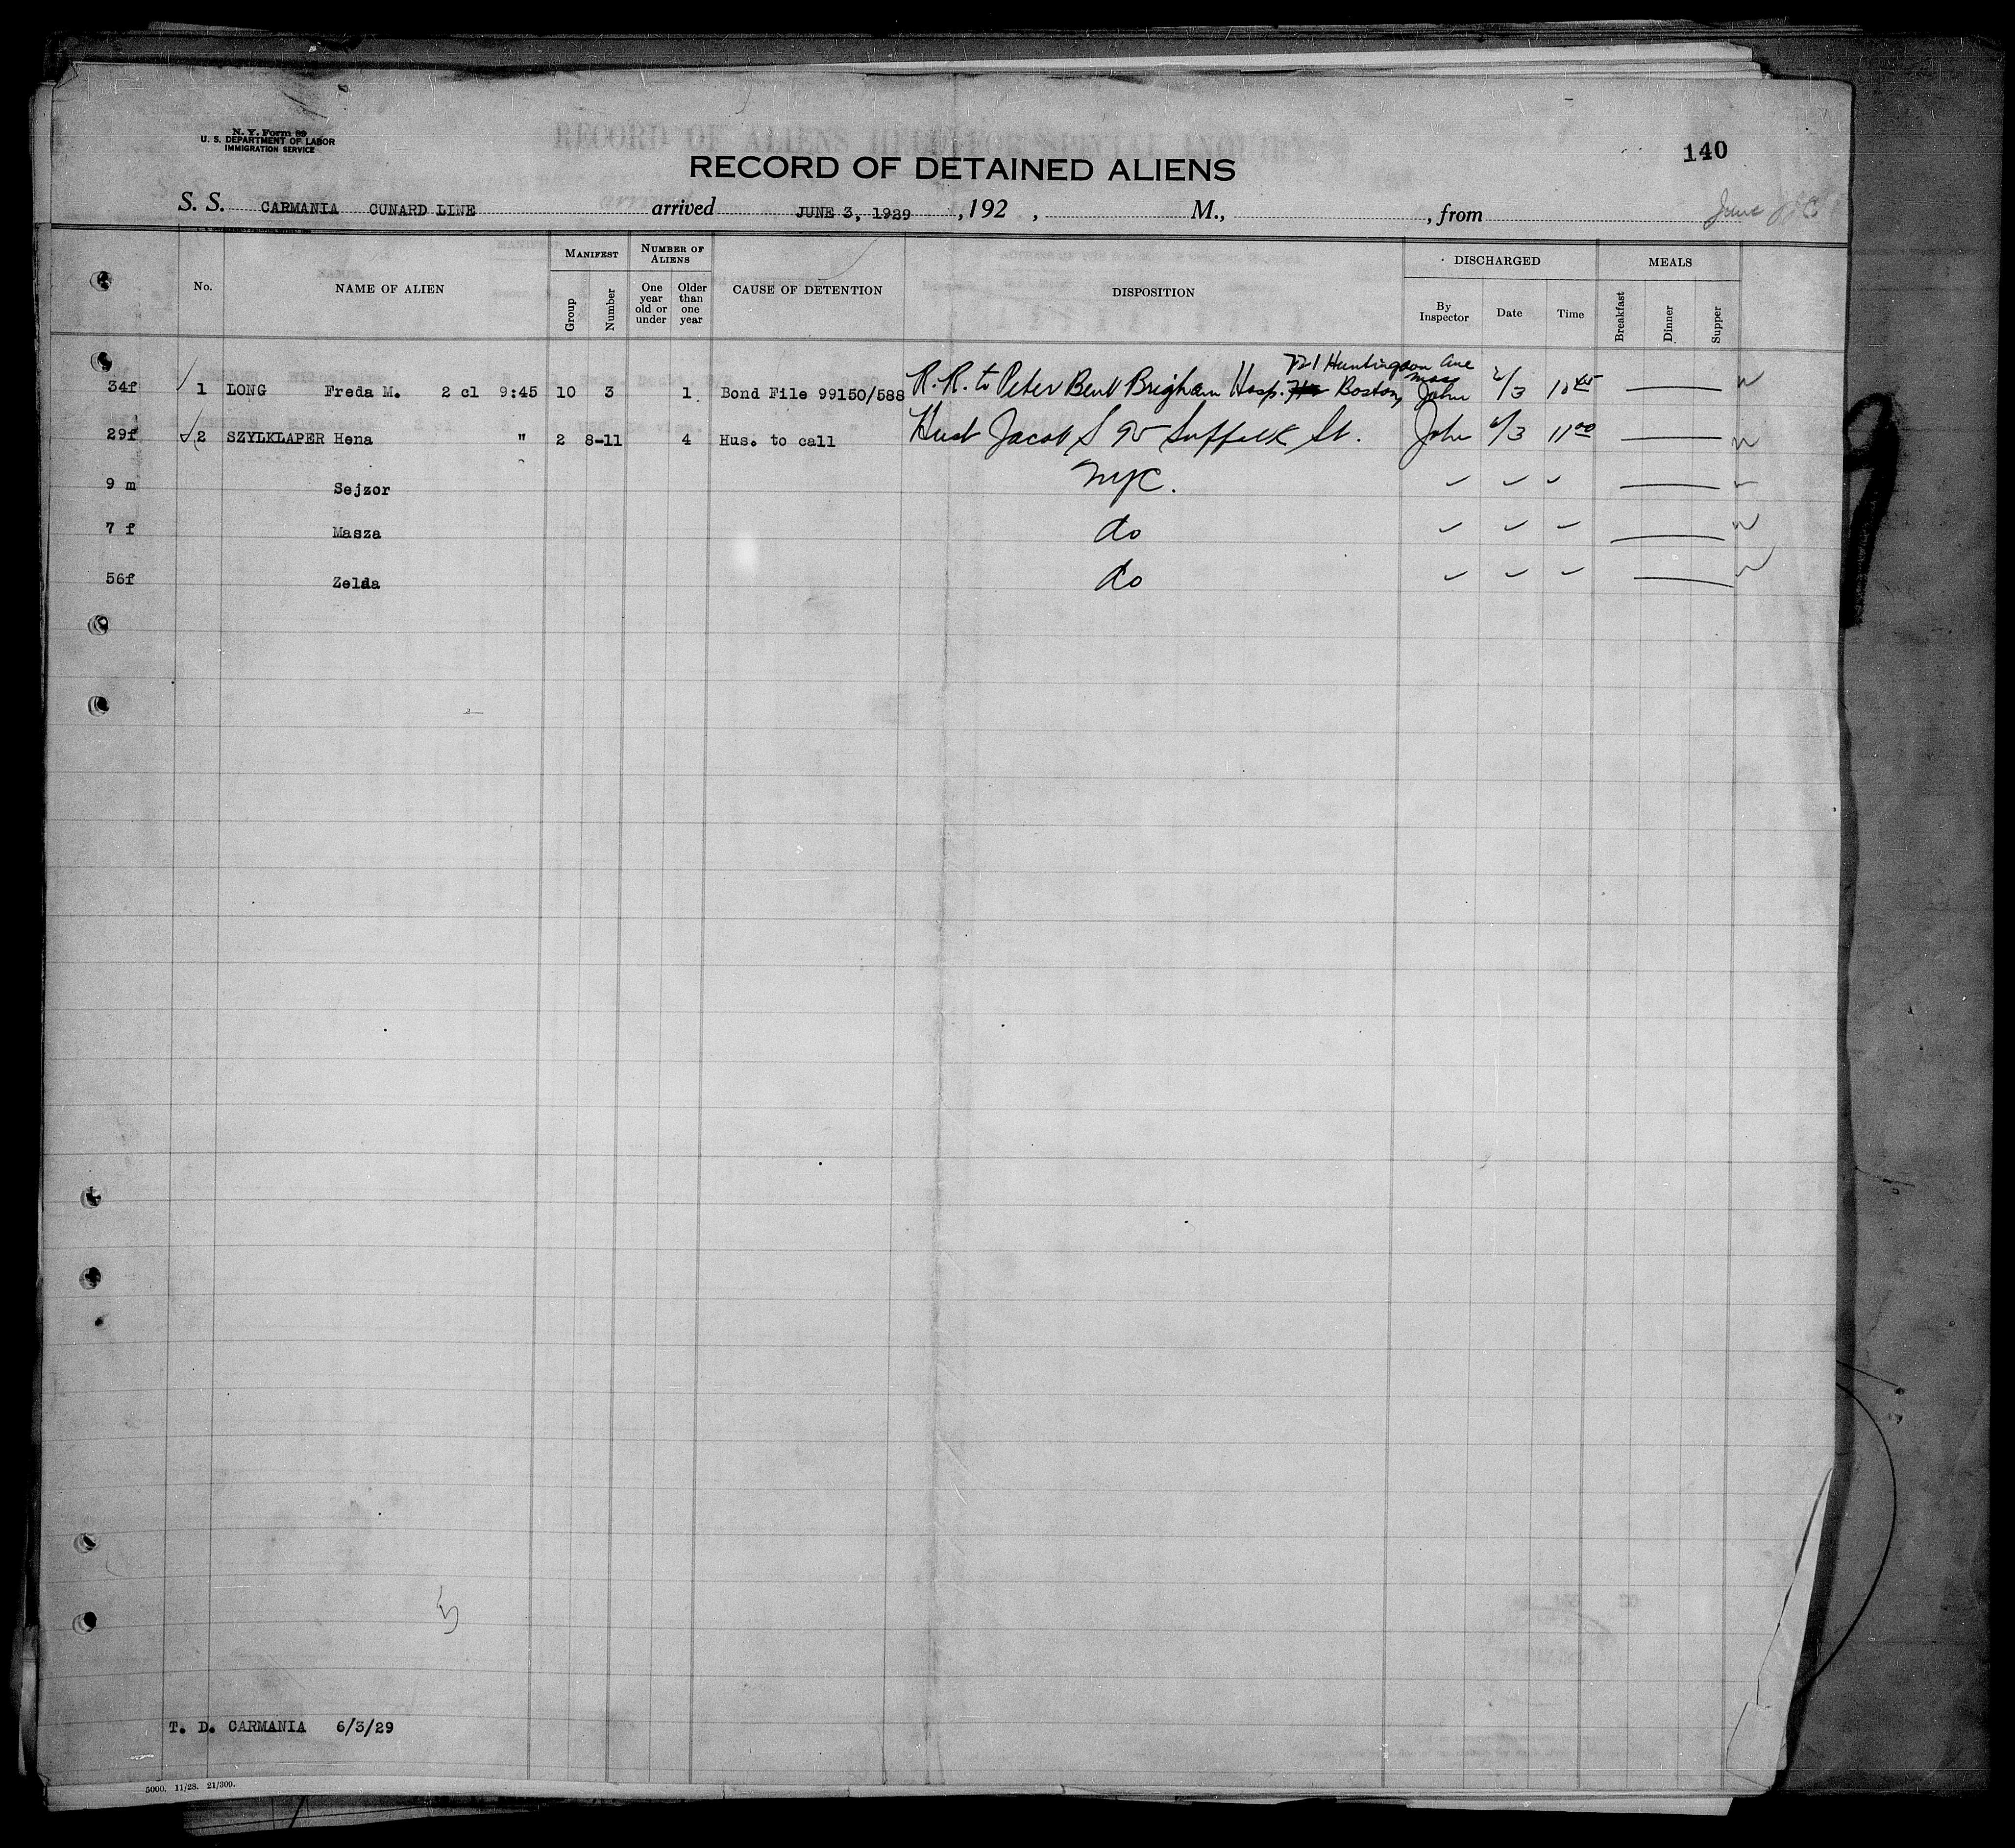 N. Y. Form 89
U. S. DEPARTMENT OF LABOR
IMMIGRATION SERVICE
RECORD OF ALIENS HELD FOR SPECIAL INQUIRY
140
RECORD OF DETAINED ALIENS
S. S. CARMANIA CUNARD LINE arrived JUNE 3, 1929 , 192 , M., , from June
No. NAME OF ALIEN MANIFEST Group Number NUMBER OF ALIENS One year old or under Older than one year CAUSE OF DETENTION DISPOSITION DISCHARGED By Inspector Date Time MEALS Breakfast Dinner Supper
721 Huntington Ave
34f 1 LONG Freda M. 2 cl 9:45 10 3 1 Bond File 99150/588 R.R. to Peter Bent Brigham Hosp. Boston, Mass John 6/3 10 45
29f 2 SZYLKLAPER Hena " 2 8-11 4 Hus. to call Husb Jacob S 95 Suffolk St. John 6/3 11 00
9 m Sejzor NYC.
7 f Masza do
56f Zelda do
T. D. CARMANIA 6/3/29
5000. 11/28. 21/300.